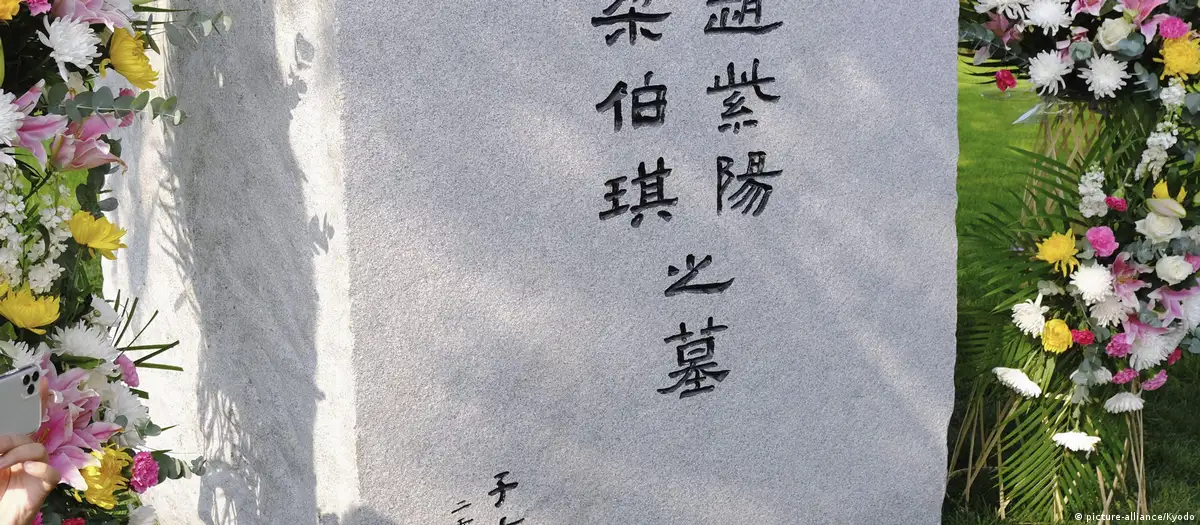 趙紫陽
梁伯琪
之墓
子
二
© picture-alliance/Kyodo